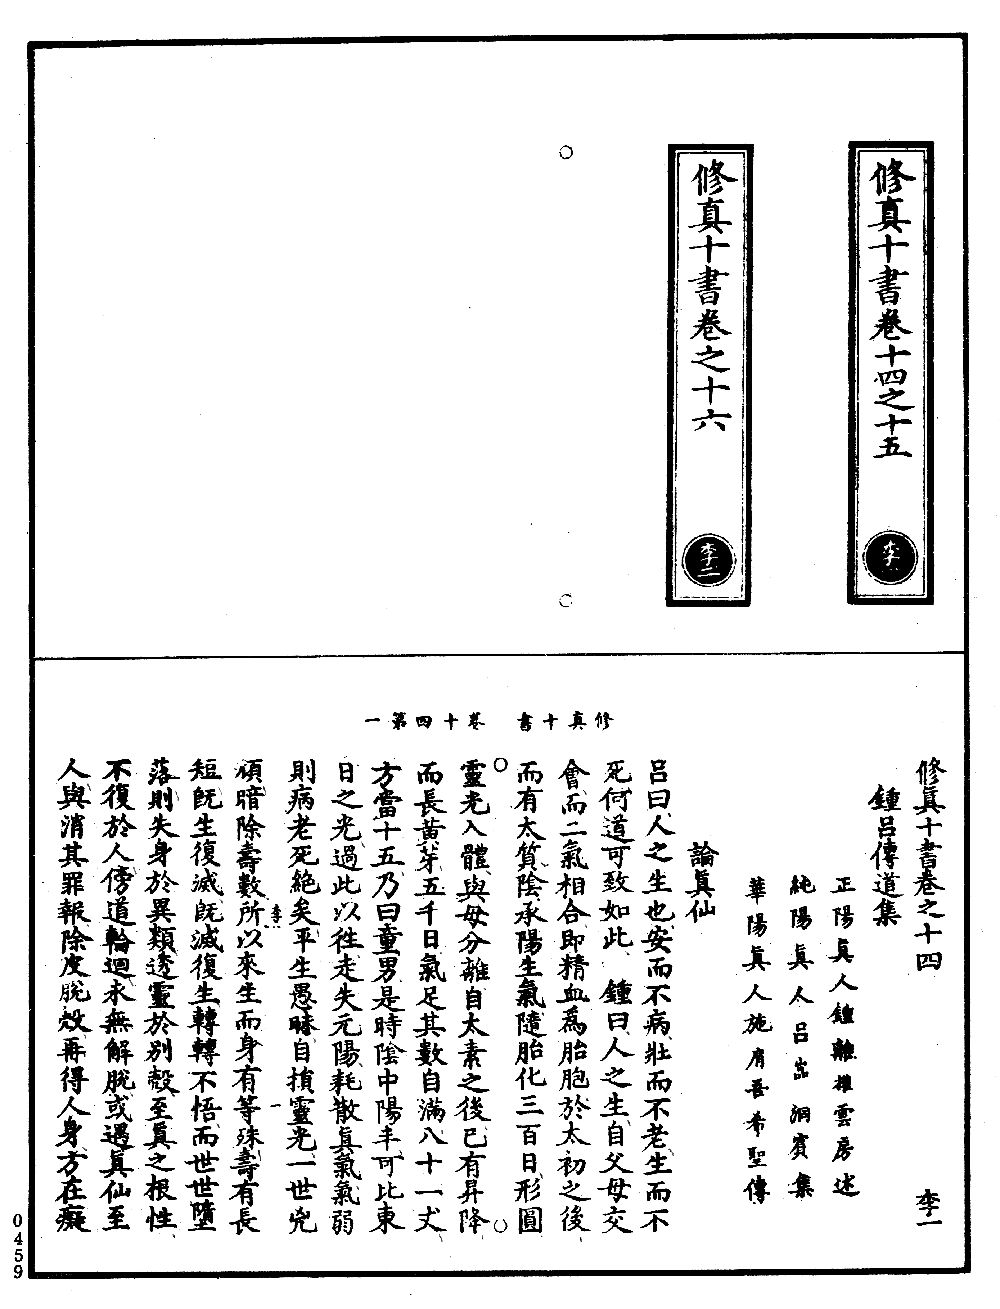 修真十書卷十四之十五
李一
修真十書卷之十六
李二
修真十書卷十四第一
修眞十書卷之十四
李一
鍾呂傳道集
正陽眞人鍾離權雲房述
純陽眞人呂嵓洞賓集
華陽眞人施肩吾希聖傳
論眞仙
呂曰人之生也安而不病壯而不老生而不
死何道可致如此 鍾曰人之生自父母交
會而二氣相合即精血爲胎胞於太初之後
而有太質陰承陽生氣隨胎化三百日形圓
靈光入體與母分離自太素之後已有昇降
而長黃芽五千日氣足其數自滿八十一丈
方當十五乃曰童男是時陰中陽半可比東
日之光過此以徃走失元陽耗散眞氣氣弱
則病老死絕矣平生愚昧自損靈光一世兇
頑暗除壽數所以來生而身有等殊壽有長
短旣生復滅旣滅復生轉轉不悟而世世墮
落則失身於異類透靈於別殼至眞之根性
不復於人傍道輪迴永無解脫或遇眞仙至
人與消其罪報除皮脫殼再得人身方在癡
李一
一
0459